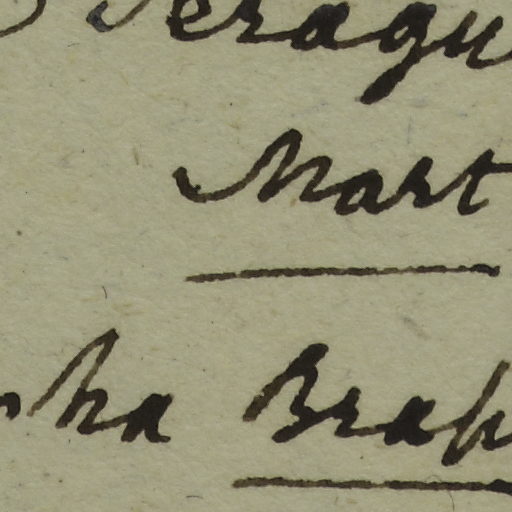 Veragu
Mart
nha Brah